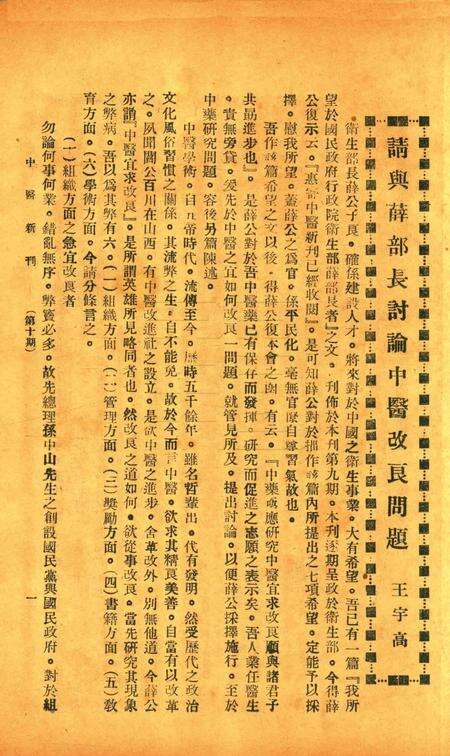 請與薛部長討論中醫改良問題
王宇高
衛生部長薛公子良。確係建設人才。將來對於中國之衛生事業。大有希望。吾已有一篇『我所
望於國民政府行政院衛生部薛部長者』之文。刊佈於本刊第九期。本刊逐期呈政於衛生部。今得薛
公復示云。『惠寄中醫新刊已經收閱』。是可知薛公對於拙作該篇內所提出之七項希望。定能予以採
擇。慰我所望。蓋薛公之為官。係平民化。毫無官廳自尊習氣故也。
吾作該篇希望之文以後。得薛公復本會之函。有云。『中藥亟應研究中醫宜求改良願與諸君子
共勗進步也』。是薛公對於吾中醫藥已有保存而發揮。研究而促進之志願之表示矣。吾人業任醫生
。責無旁貸。爰先於中醫之宜如何改良一問題。就管見所及。提出討論。以便薛公採擇施行。至於
中藥研究問題。容後另篇陳述。
中醫學術。自五帝時代。流傳至今。歷時五千餘年。雖名哲輩出。代有發明。然受歷代之政治
文化風俗習慣之關係。其流弊之生。自不能免。故於今而言中醫。欲求其精良美善。自當有以改革
之。夙聞閻公百川在山西。有中醫改進社之設立。是欲中醫之進步。舍革改外。別無他道。今薛公
亦謂『中醫宜求改良』。是所謂英雄所見略同者也。然改良之道如何。欲從事改良。當先研究其現象
之弊病。吾以為其弊有六。(一)組織方面。(二)管理方面。(三)獎勵方面。(四)書籍方面。(五)教
育方面。(六)學術方面。今請分條言之。
(一)組織方面之急宜改良者
勿論何事何業。錯亂無序。弊竇必多。故先總理孫中山先生之創設國民黨與國民政府。對於組
中醫新刊 (第十期) 一